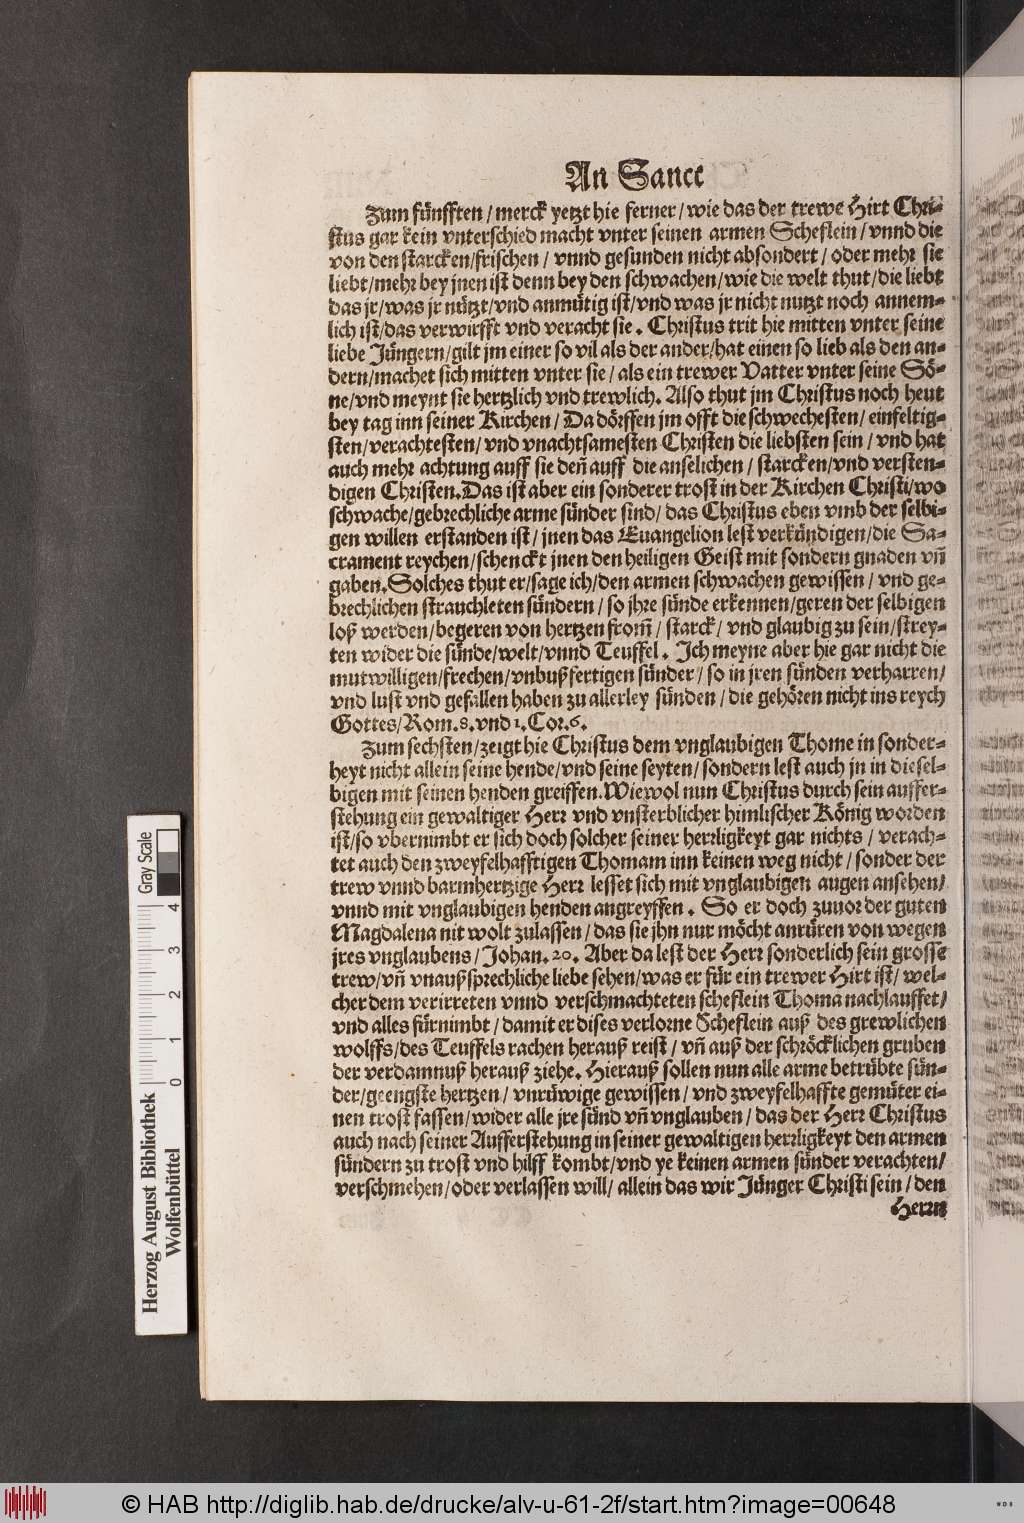 An Sanct
Zum fünfften / merck yetzt hie ferner / wie das der trewe Hirt Chri-
stus gar kein vnterschied macht vnter seinen armen Scheflein / vnnd die
von den starcken / frischen / vnnd gesunden nicht absondert / oder mehr sie
liebt / mehr bey jnen ist denn bey den schwachen / wie die welt thut / die liebt
das jr / was jr nützt / vnd anmütig ist / vnd was jr nicht nutzt noch annem-
lich ist / das verwirfft vnd veracht sie. Christus trit hie mitten vnter seine
liebe Jüngern / gilt jm einer so vil als der ander / hat einen so lieb als den an-
dern / machet sich mitten vnter sie / als ein trewer Vatter vnter seine Sö-
ne / vnd meynt sie hertzlich vnd trewlich. Also thut jm Christus noch heut
bey tag inn seiner Kirchen / Da dörffen jm offt die schwechesten / einfeltig-
sten / verachtesten / vnd vnachtsamesten Christen die liebsten sein / vnd hat
auch mehr achtung auff sie deñ auff die anselichen / starcken / vnd versten-
digen Christen. Das ist aber ein sonderer trost in der Kirchen Christi / wo
schwache / gebrechliche arme sünder sind / das Christus eben vmb der selbi-
gen willen erstanden ist / jnen das Euangelion lest verkündigen / die Sa-
crament reychen / schenckt jnen den heiligen Geist mit sondern gnaden vñ
gaben. Solches thut er / sage ich / den armen schwachen gewissen / vnd ge-
brechlichen strauchleten sündern / so jhre sünde erkennen / geren der selbigen
loß werden / begeren von hertzen from̃ / starck / vnd glaubig zu sein / strey-
ten wider die sünde / welt / vnnd Teuffel. Ich meyne aber hie gar nicht die
mutwilligen / frechen / vnbußfertigen sünder / so in jren sünden verharren /
vnd lust vnd gefallen haben zu allerley sünden / die gehören nicht ins reych
Gottes / Rom. 8. vnd 1. Cor. 6.
Zum sechsten / zeigt hie Christus dem vnglaubigen Thome in sonder-
heyt nicht allein seine hende / vnd seine seyten / sondern lest auch jn in diesel-
bigen mit seinen henden greiffen. Wiewol nun Christus durch sein auffer-
stehung ein gewaltiger Herr vnd vnsterblicher himlischer König worden
ist / so vbernimbt er sich doch solcher seiner herrligkeyt gar nichts / verach-
tet auch den zweyfelhafftigen Thomam inn keinen weg nicht / sonder der
trew vnnd barmhertzige Herr lesset sich mit vnglaubigen augen ansehen /
vnnd mit vnglaubigen henden angreyffen. So er doch zuuor der guten
Magdalena nit wolt zulassen / das sie jhn nur möcht anrüren von wegen
jres vnglaubens / Johan. 20. Aber da lest der Herr sonderlich sein grosse
trew / vñ vnaußsprechliche liebe sehen / was er für ein trewer Hirt ist / wel-
cher dem verirreten vnnd verschmachteten scheflein Thoma nachlauffet /
vnd alles fürnimbt / damit er dises verlorne Scheflein auß des grewlichen
wolffs / des Teuffels rachen herauß reist / vñ auß der schröcklichen gruben
der verdamnuß herauß ziehe. Hierauß sollen nun alle arme betrübte sün-
der / geengste hertzen / vnrüwige gewissen / vnd zweyfelhaffte gemüter ei-
nen trost fassen / wider alle jre sünd vñ vnglauben / das der Herr Christus
auch nach seiner Aufferstehung in seiner gewaltigen herrligkeyt den armen
sündern zu trost vnd hilff kombt / vnd ye keinen armen sünder verachten /
verschmehen / oder verlassen will / allein das wir Jünger Christi sein / den
Herrn
Herzog August Bibliothek
Wolfenbüttel
0 1 2 3 4
Gray Scale
© HAB http://diglib.hab.de/drucke/alv-u-61-2f/start.htm?image=00648